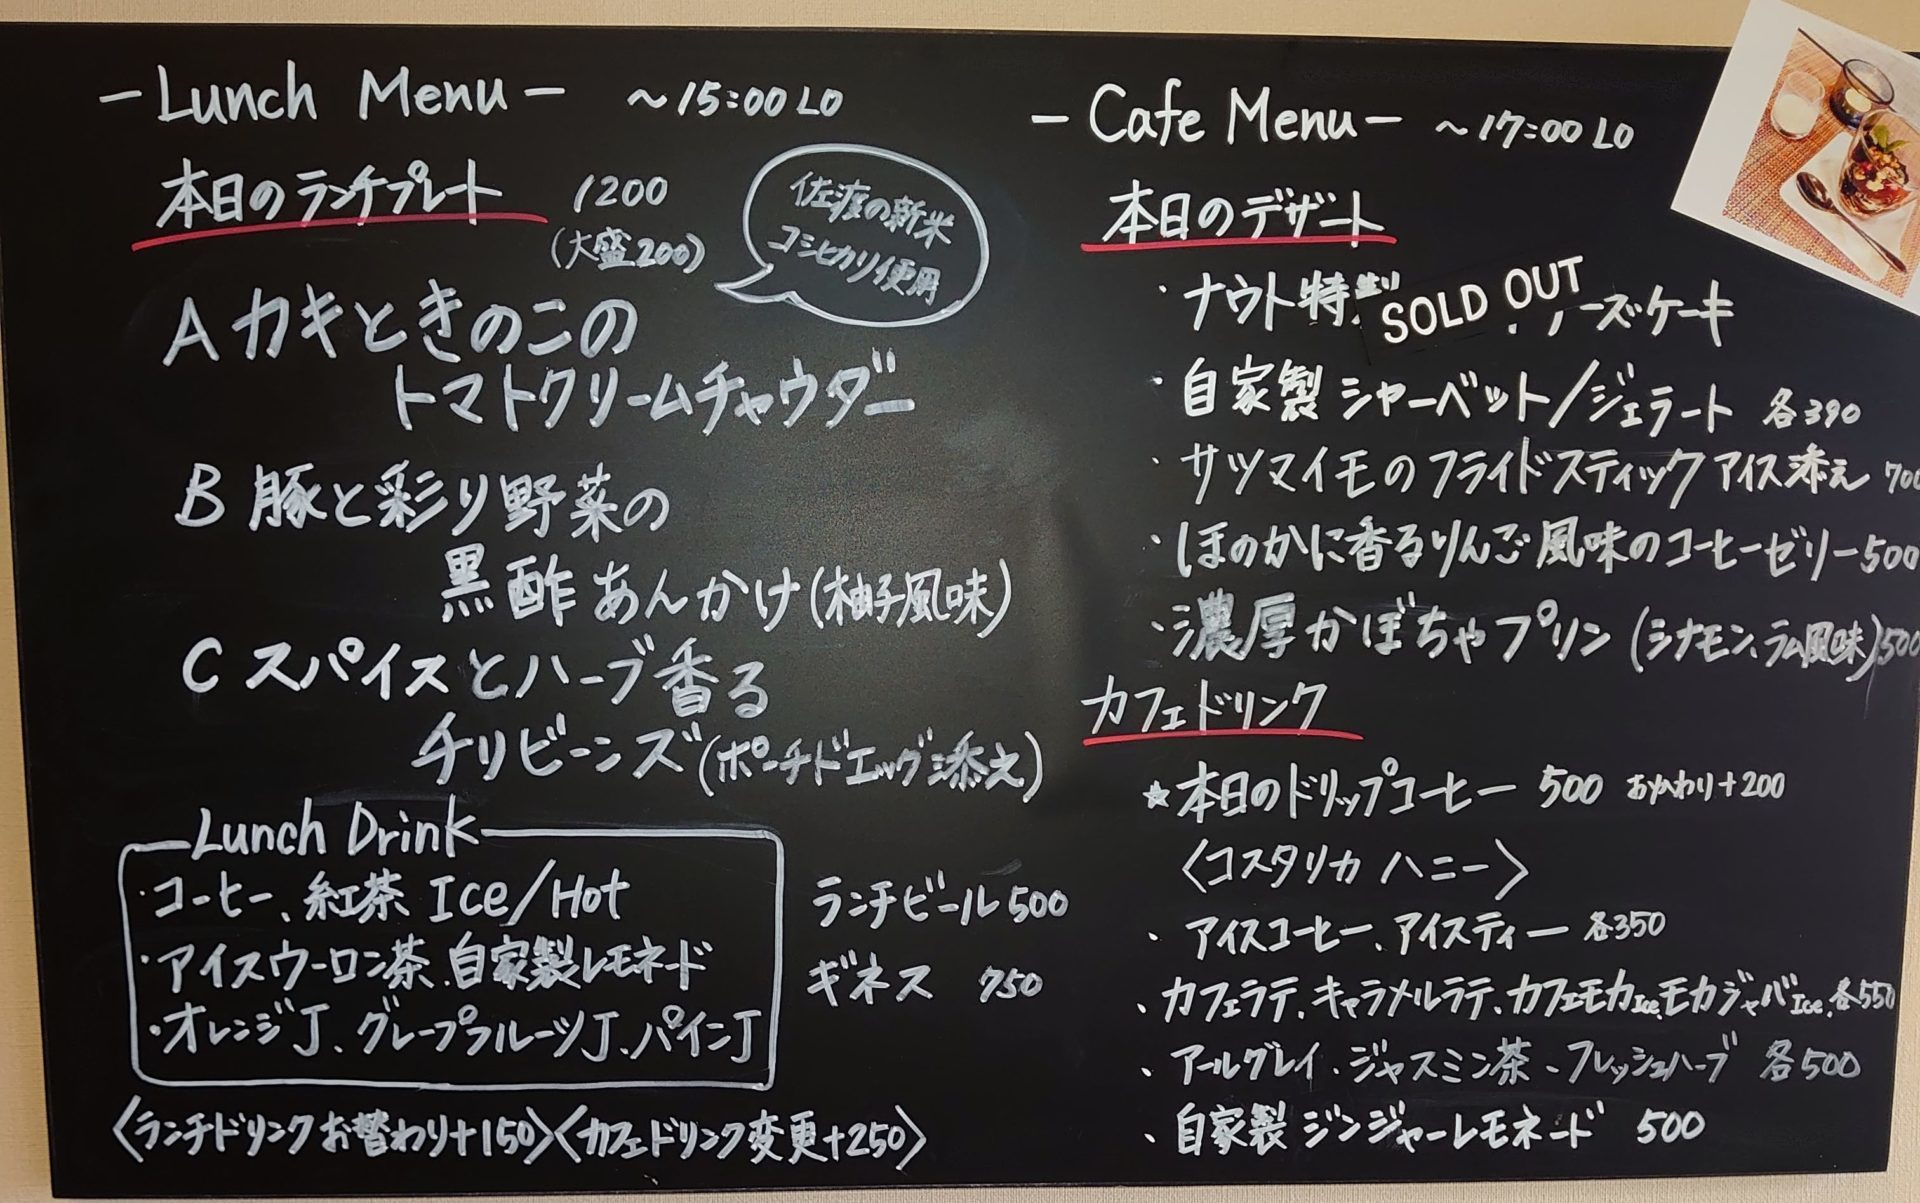 -Lunch Menu- ～15:00 LO
本日のランチプレート 1200
(大盛200)
佐渡の新米
コシヒカリ使用
A カキときのこの
トマトクリームチャウダー
B 豚と彩り野菜の
黒酢あんかけ(柚子風味)
C スパイスとハーブ香る
チリビーンズ(ポーチドエッグ添え)
Lunch Drink
・コーヒー、紅茶 Ice/Hot
・アイスウーロン茶、自家製レモネード
・オレンジJ、グレープフルーツJ、パインJ
ランチビール500
ギネス 750
〈ランチドリンクお替わり+150〉〈カフェドリンク変更+250〉
-Cafe Menu- ～17:00 LO
本日のデザート
・ナウト特製 ーズケーキ
SOLD OUT
・自家製シャーベット/ジェラート 各390
・サツマイモのフライドスティックアイス添え 700
・ほのかに香るりんご風味のコーヒーゼリー500
・濃厚かぼちゃプリン(シナモン、ラム風味)500
カフェドリンク
☆本日のドリップコーヒー 500 おかわり+200
〈コスタリカ ハニー〉
・アイスコーヒー、アイスティー 各350
・カフェラテ、キャラメルラテ、カフェモカIce、モカジャバIce、各550
・アールグレイ・ジャスミン茶・フレッシュハーブ 各500
・自家製ジンジャーレモネード 500